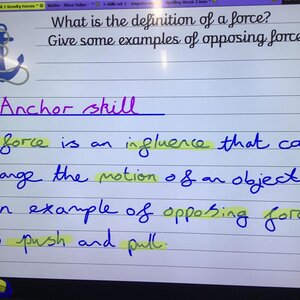 1 Gravity Forces
Maths - Place Value
What is the definition of a force?
Give some examples of opposing force
Anchor skill
force is an influence that ca
ange the motion of an object
n example of opposing for
push and pull.